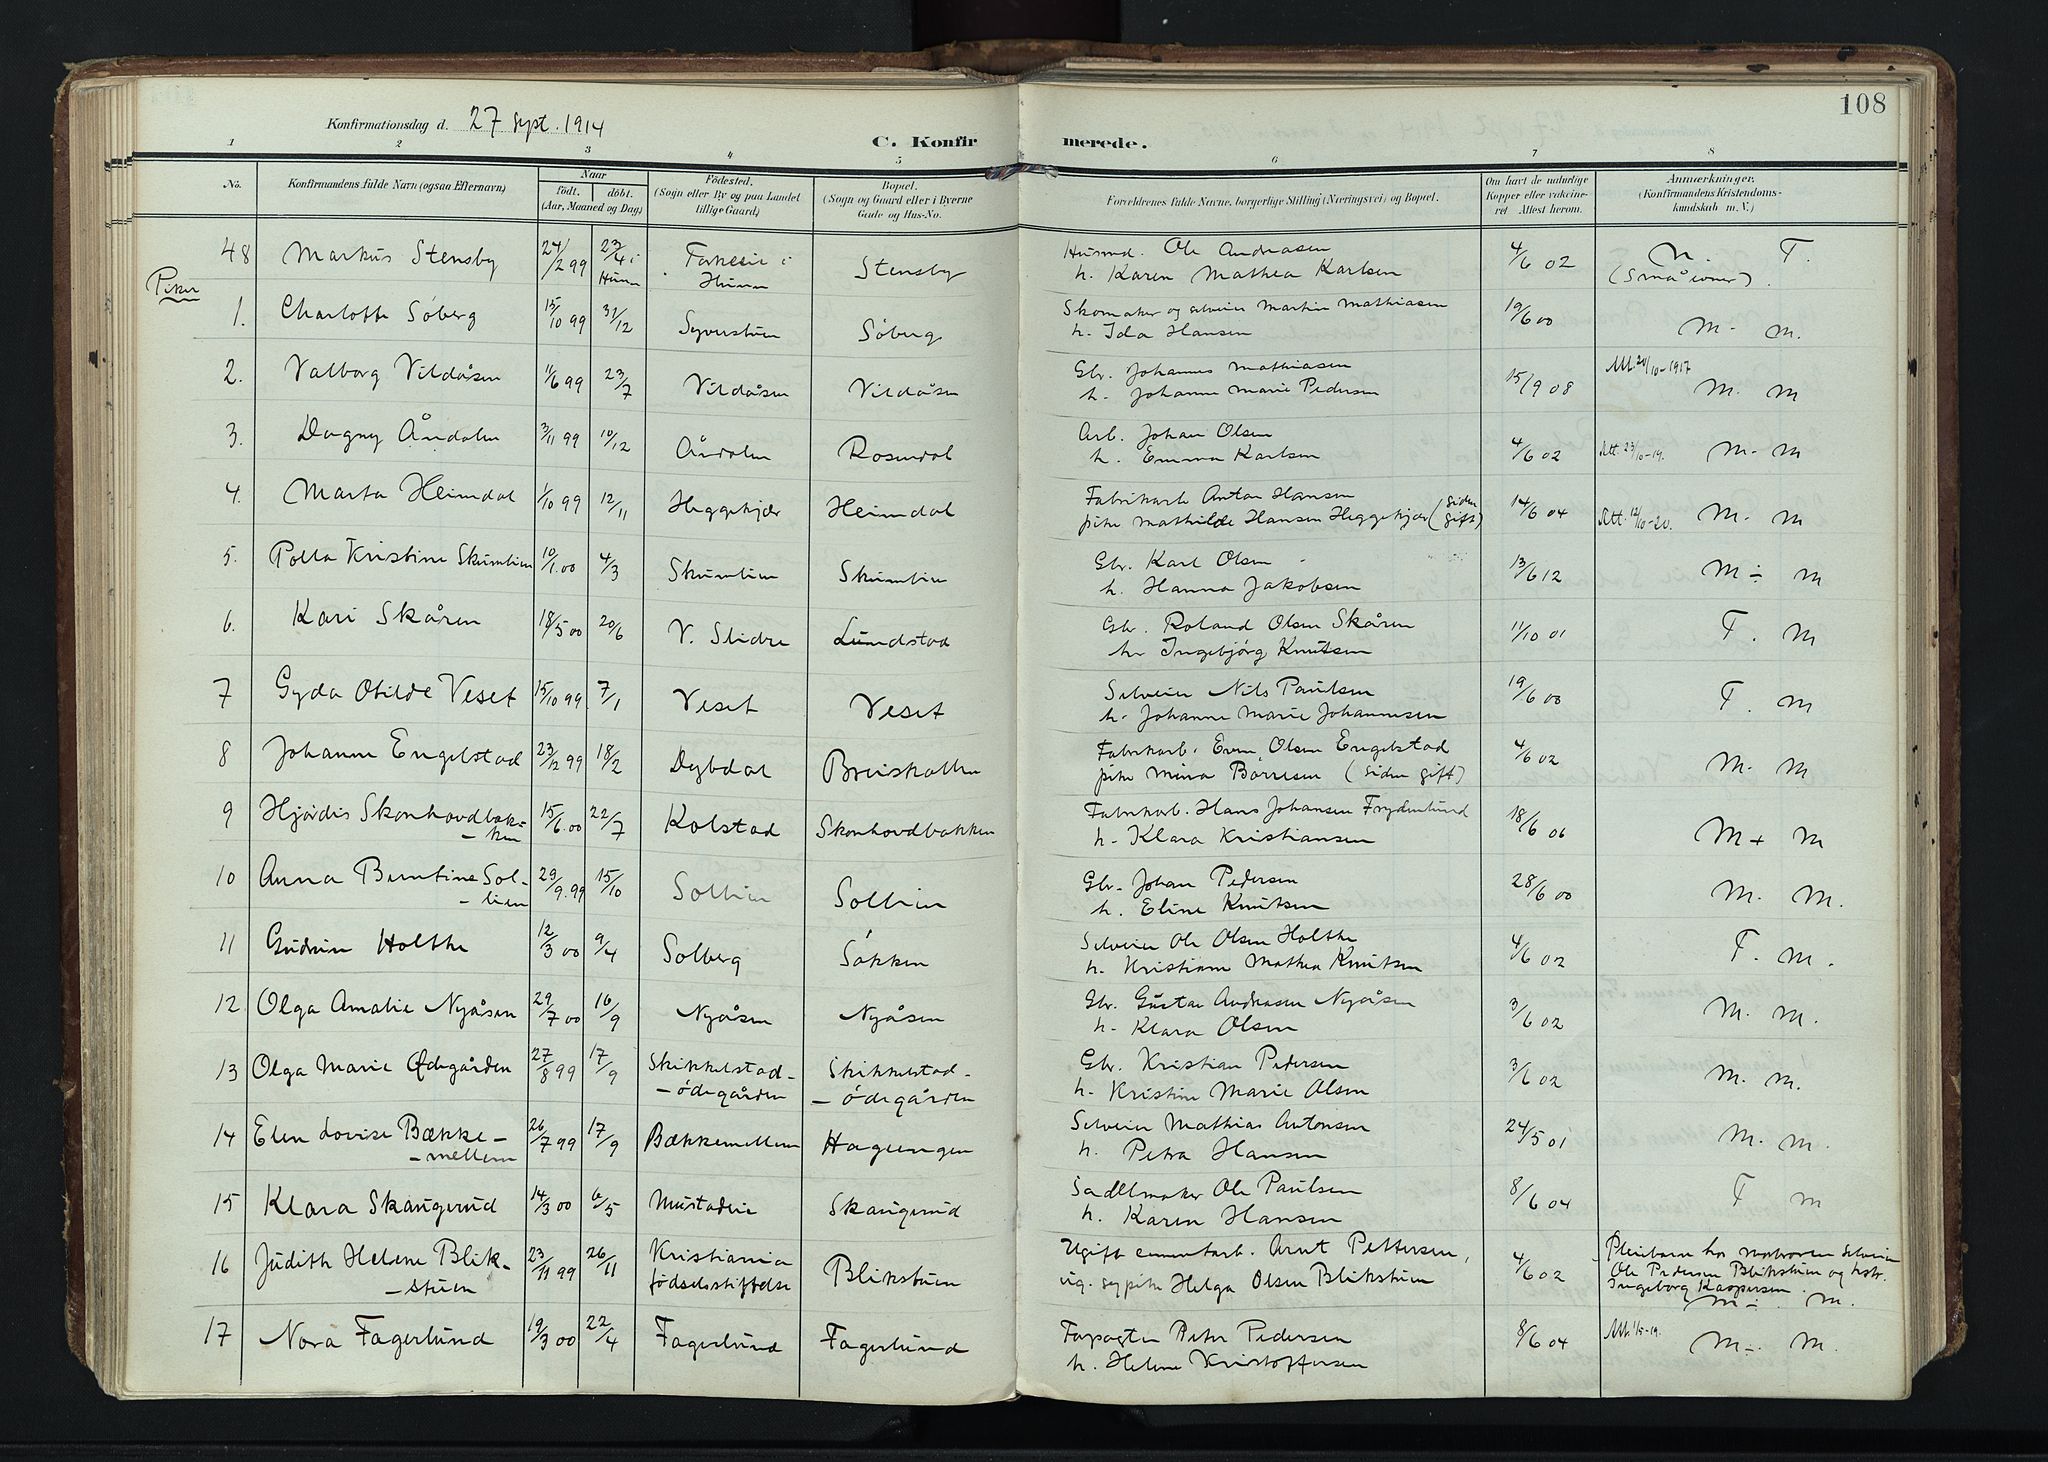 108
Konfirmationsdag d. 27 sept. 1914
C. Konfirmerede.
1 2 3 4 5 6 7 8
No. Konfirmandens fulde Navn (ogsaa Efternavn) Naar født. døbt. (Aar, Maaned og Dag) Fødested. (Sogn eller By og paa Landet tillige Gaard) Bopæl. (Sogn og Gaard eller i Byerne Gade og Hus-No. Forældrenes fulde Navne, borgerlige Stilling (Næringsvei) og Bopæl. Om havt de naturlige Kopper eller vakcineret. Attest herom. Anmærkninger. (Konfirmandens Kristendomskundskab m.V.)
48 Markus Stensby 24/2 99 23/4 i Hunn Hunn Stensby Husmd. Ole Andreasen
h. Karen Mathea Karlsen 4/6 02 (Små evner). T.
Piker
1. Charlotte Søberg 15/10 99 31/12 Syverstuen Søberg Skomaker og selveier Martin Mathiasen
h. Ida Hansen 19/6 00 M- M.
2. Valborg Vildåsen 11/6 99 23/7 Vildåsen Vildåsen Gbr. Johannes Mathiasen
h. Johanne Marie Pedersen 15/9 08 Att. 20/10-1917 M. M
3. Dagny Åndalen 3/11 99 10/12 Åndalen Rosendal Arb. Johan Olsen
h. Emma Karlsen 4/6 02 Att. 23/10-19. M- M
4. Marta Heimdal 1/10 99 12/11 Heggekjær Heimdal Fabrikarb. Anton Hansen
pike Mathilde Hansen Heggekjær (siden gift) 14/6 04 Att. 12/10-20. M. M
5. Polla Kristine Skumlien 10/1 00 4/3 Skumlien Skumlien Gbr. Karl Olsen
h. Hanna Jakobsen 13/6 12 M÷ M
6. Kari Skåren 18/5 00 20/6 V. Slidre Lundstad Gbr. Roland Olsen Skåren
h. Ingebjørg Knutsen 11/10 01 T. M
7 Gyda Otilde Veset 15/10 99 7/1 Veset Veset Selveier Nils Paulsen
h. Johanne Marie Johannesen 19/6 00 T. M
8 Johanne Engelstad 23/12 99 18/2 Dybdal Breiskallen Fabrikarb. Even Olsen Engelstad
pike Mina Børresen (siden gift) 4/6 02 M. M
9 Hjørdis Skonhovdbakken 15/6 00 22/7 Kolstad Skonhovdbakken Fabrikarb. Hans Johansen Frydenlund
h. Klara Kristiansen 18/6 06 M+ M
10 Anna Berntine Sollien 29/9 99 15/10 Sollien Sollien Gbr. Johan Pedersen
h. Eline Knutsen 28/6 00 M. M.
11 Gudrun Holthe 12/3 00 9/4 Solberg Søkken Selveier Ole Olsen Holthe
h. Kristiane Mathea Knutsen 4/6 02 T. M.
12 Olga Amalie Nyåsen 29/7 00 16/9 Nyåsen Nyåsen Gbr. Gustav Andreasen Nyåsen
h. Klara Olsen 3/6 02 M. M.
13 Olga Marie Ødegården 27/8 99 17/9 Skikkelstad-ødegården Skikkelstad-ødegården Gbr. Kristian Pedersen
h. Kristine Marie Olsen 3/6 02 M. M.
14 Elen Lovise Bækkemellem 26/7 99 17/9 Bækkemellem Hageengen Selveier Mathias Antonsen
h. Petra Hansen 24/5 01 M. M.
15 Klara Skaugerud 14/3 00 6/5 Mustadeie Skaugerud Sadelmaker Ole Paulsen
h. Karen Hansen 8/6 04 T M
16 Judith Helene Blikstuen 23/11 99 26/11 Kristiania fødselsstiftelse Blikstuen Ugift cementarb. Arnt Pettersen,
ug. sypike Helga Olsen Blikstuen 4/6 02 Pleiebarn hos morbroren selveier
Ole Pedersen Blikstuen og hstr.
Ingeborg Kaspersen.
M÷. M.
17 Nora Fagerlund 19/3 00 22/4 Fagerlund Fagerlund Forpagter Peter Pedersen
h. Helene Kristoffersen 8/6 04 M÷. M.